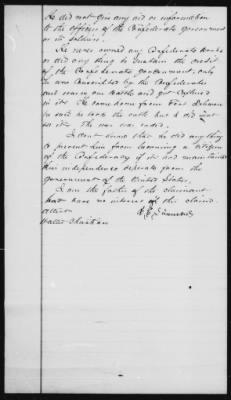 He did not give any aid or information
to the officers of the Confederate government
or its soldiers.
He never owned any Confederate bonds
or did any thing to sustain the credit
of the Confederate government, only
he was conscripted by the Confederates
and was in one battle and got captured
in it. He came home from Fort Delaware
he said he took the oath but I did not
see it. The war was ended.
I dont know that he did anything
to prevent him from becoming a citizen
of the Confederacy if it had maintained
their independence seperate from the
government of the United States.
I am the father of the claimant
but have no interest of this claim.
Attest